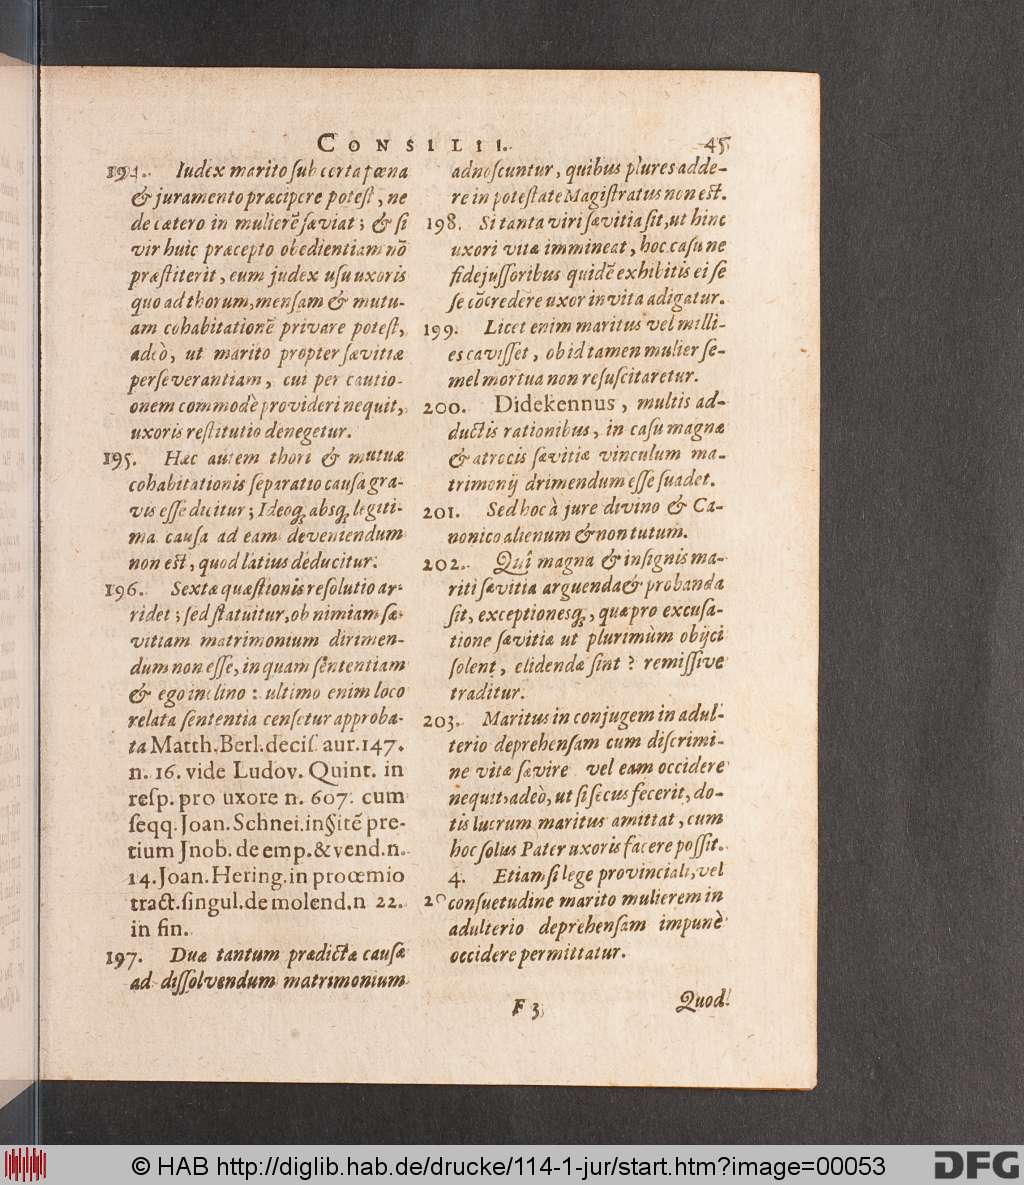 CONSILII.
45
194. Iudex marito sub certa pœna
& juramento præcipere potest, ne
de cætero in mulierē sæviat; & si
vir huic præcepto obedientiam nō
præstiterit, eum judex usu uxoris
quo ad thorum, mensam & mutu-
am cohabitationē privare potest,
adeò, ut marito propter sævitiæ
perseverantiam, cui per cautio-
onem commodè provideri nequit,
uxoris restitutio denegetur.
195. Hæc autem thori & mutuæ
cohabitationis separatio causa gra-
vis esse dicitur; Ideoq; absq; legiti-
ma causa ad eam deveniendum
non est, quod latius deducitur.
196. Sextæ quæstionis resolutio ar-
ridet; sed statuitur, ob nimiam sæ-
vitiam matrimonium dirimen-
dum non esse, in quam sententiam
& ego inclino: ultimo enim loco
relata sententia censetur approba-
ta Matth. Berl. decis. aur. 147.
n. 16. vide Ludov. Quint. in
resp. pro uxore n. 607. cum
seqq. Joan. Schnei. in § itē pre-
tium Jnob. de emp. & vend. n.
14. Joan. Hering. in proœmio
tract. singul. de molend. n 22.
in fin.
197. Duæ tantum prædictæ causæ
ad dissolvendum matrimonium
adnoscuntur, quibus plures adde-
re in potestate Magistratus non est.
198. Si tanta viri sævitia sit, ut hinc
uxori vitæ immineat, hoc casu ne
fidejussoribus quidē exhibitis ei se
se cōcredere uxor invita adigatur.
199. Licet enim maritus vel milli-
es cavisset, ob id tamen mulier se-
mel mortua non resuscitaretur.
200. Didekennus, multis ad-
ductis rationibus, in casu magnæ
& atrocis sævitiæ vinculum ma-
trimonij drimendum esse suadet.
201. Sed hoc à jure divino & Ca-
nonico alienum & non tutum.
202. Quî magna & insignis ma-
riti sævitia arguenda & probanda
sit, exceptionesq;, quæ pro excusa-
tione sævitiæ ut plurimùm obijci
solent, elidendæ sint? remissive
traditur.
203. Maritus in conjugem in adul-
terio deprehensam cum discrimi-
ne vitæ sævire vel eam occidere
nequit, adeò, ut si secus fecerit, do-
tis lucrum maritus amittat, cum
hoc solus Pater uxoris facere possit.
4. Etiamsi lege provinciali, vel
20 consuetudine marito mulierem in
adulterio deprehensam impunè
occidere permittatur.
F 3
Quod
© HAB http://diglib.hab.de/drucke/114-1-jur/start.htm?image=00053
DFG